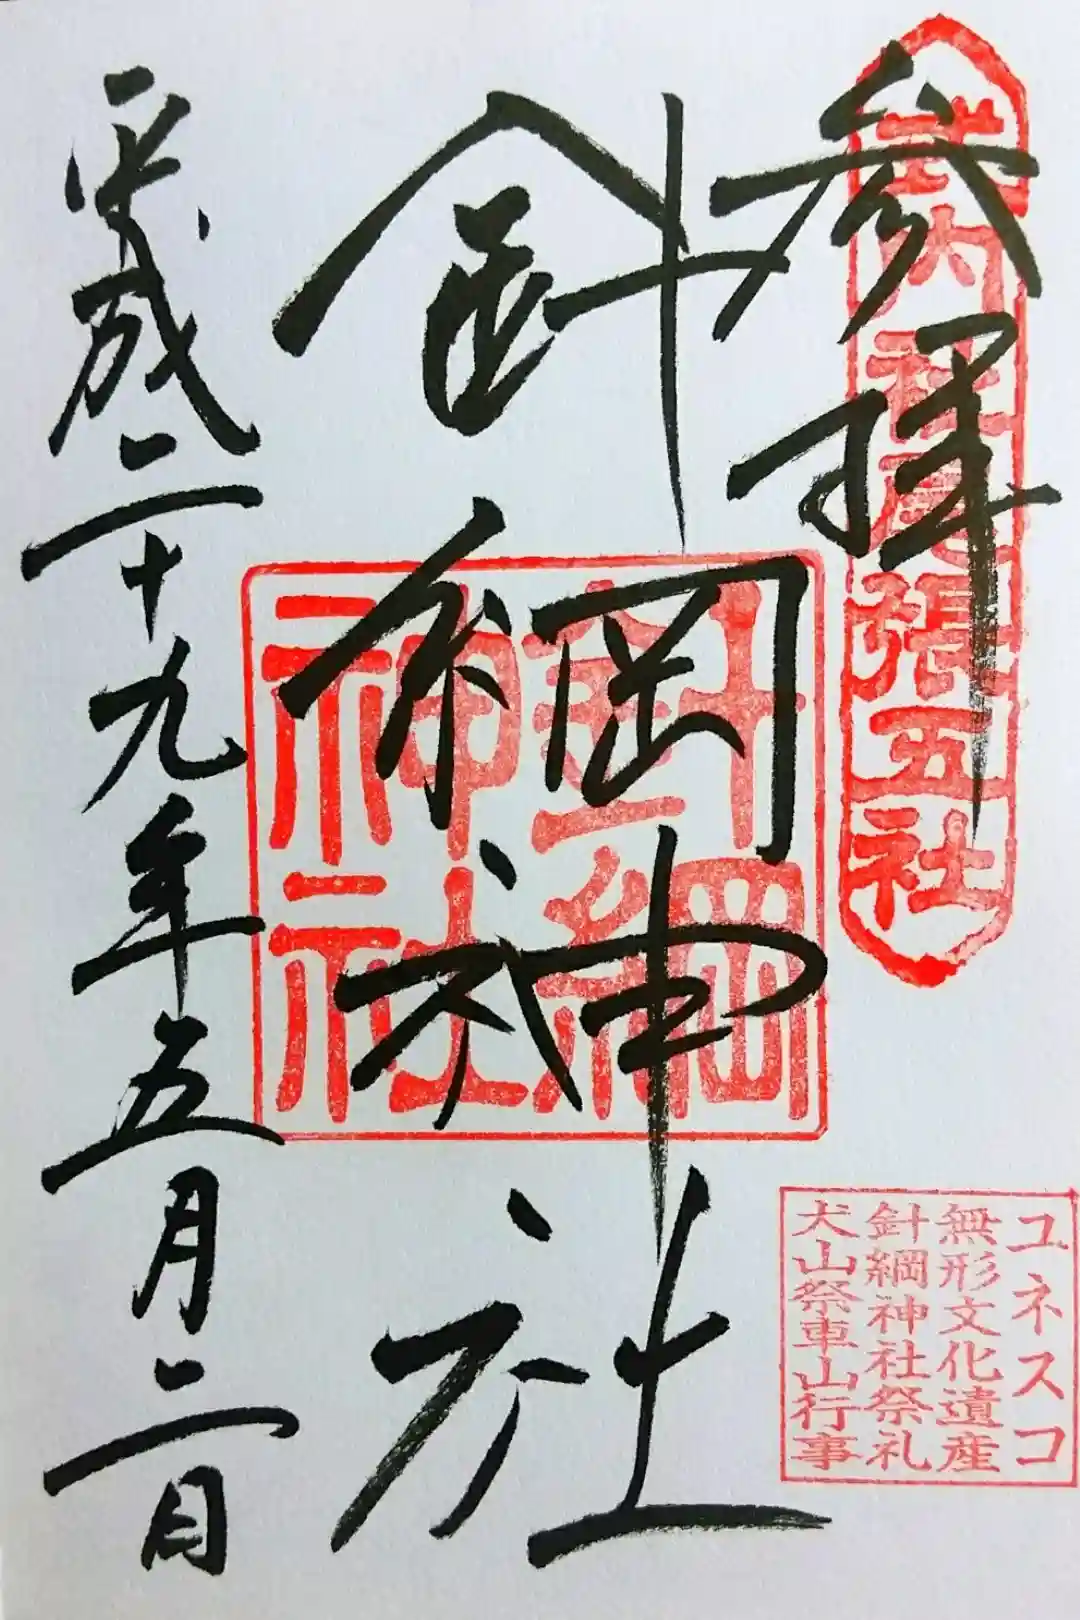 参拝
式内社尾張五社
針綱神社
針綱神社
平成二十九年五月二日
ユネスコ
無形文化遺産
針綱神社祭礼
犬山祭車山行事